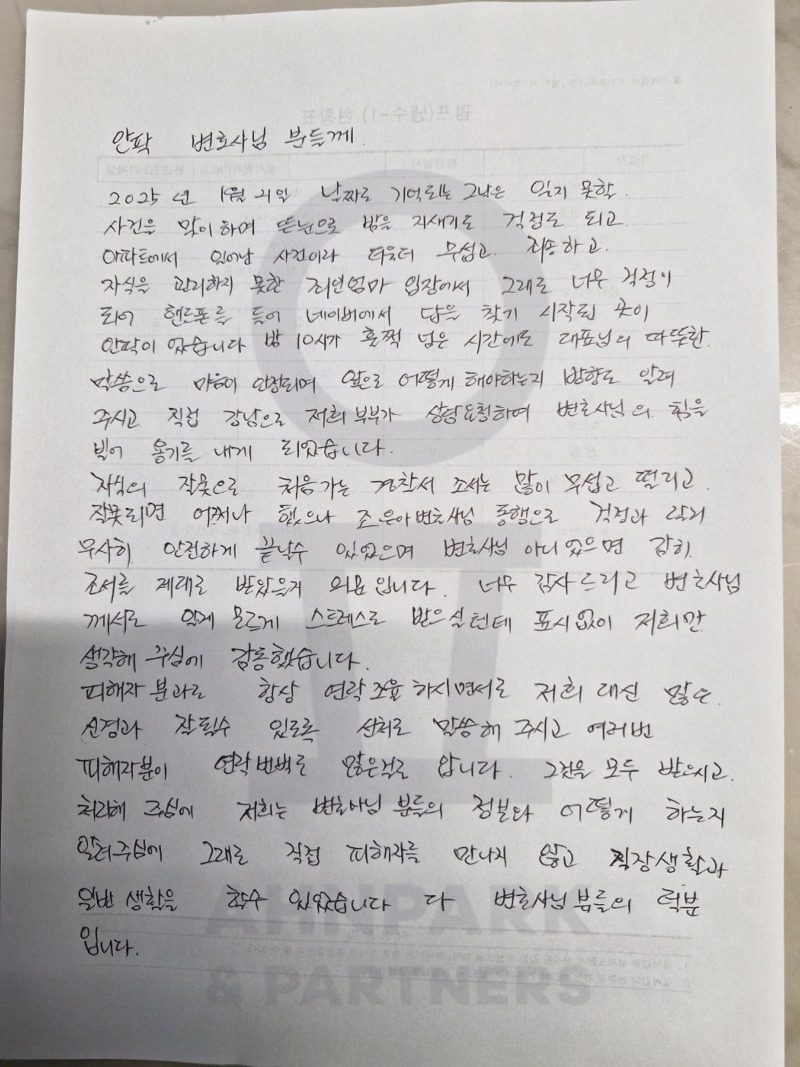 안팍 변호사님 분들께.
2025년 1월 21일 날짜로 기억되는 그날은 잊지 못할
사건을 맞이하여 뜬눈으로 밤을 지새기도 걱정도 되고
아파트에서 일어난 사건이라 더욱더 무섭고. 죄송하고.
자식을 관리하지 못한 죄인엄마 입장에서 그래도 너무 걱정이
되어 핸드폰을 들어 네이버에서 답을 찾기 시작된 곳이
안팍이 였습니다 밤 10시가 훌쩍 넘은 시간에도 대표님의 따뜻한.
말씀으로 마음이 안정되며 앞으로 어떻게 해야하는지 방향도 알려
주시고 직접 강남으로 저희 부부가 상담요청하여 변호사님의 힘을
빌어 용기를 내게 되었습니다.
자식의 잘못으로 처음가는 경찰서 조서는 많이 무섭고 떨리고.
잘못되면 어쩌나 했으나 조은아변호사님 동행으로 걱정과 달리
무사히. 안전하게 끝날수 있었으며 변호사님 아니였으면 감히.
조서를 제대로 받았을지 의문입니다. 너무 감사드리고 변호사님
께서도 알게 모르게 스트레스도 받으실텐데 표시없이 저희만
생각해 주심에 감동했습니다.
피해자 분과도 항상 연락조율 하시면서도 저희 대신 많은.
신경과 잘될수 있도록 선처로 말씀해 주시고 여러번
피해자분이 연락번벅도 많은걸로 압니다. 그것을 모두 받으시고.
처리해 주심에 저희는 변호사님 분들의 정보와 어떻게 하는지
알려주심에 그래도 직접 피해자를 만나지 않고 직장생활과
일반 생활을 할수 있었습니다 다 변호사님분들의 덕분
입니다.
펌프(냉수-1) 현황표
AHNPARK
& PARTNERS